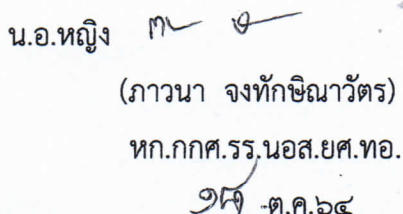 น.อ.หญิง
(ภาวนา จงทักษิณาวัตร)
หก.กกศ.รร.นอส.ยศ.ทอ.
ต.ค.๖๔